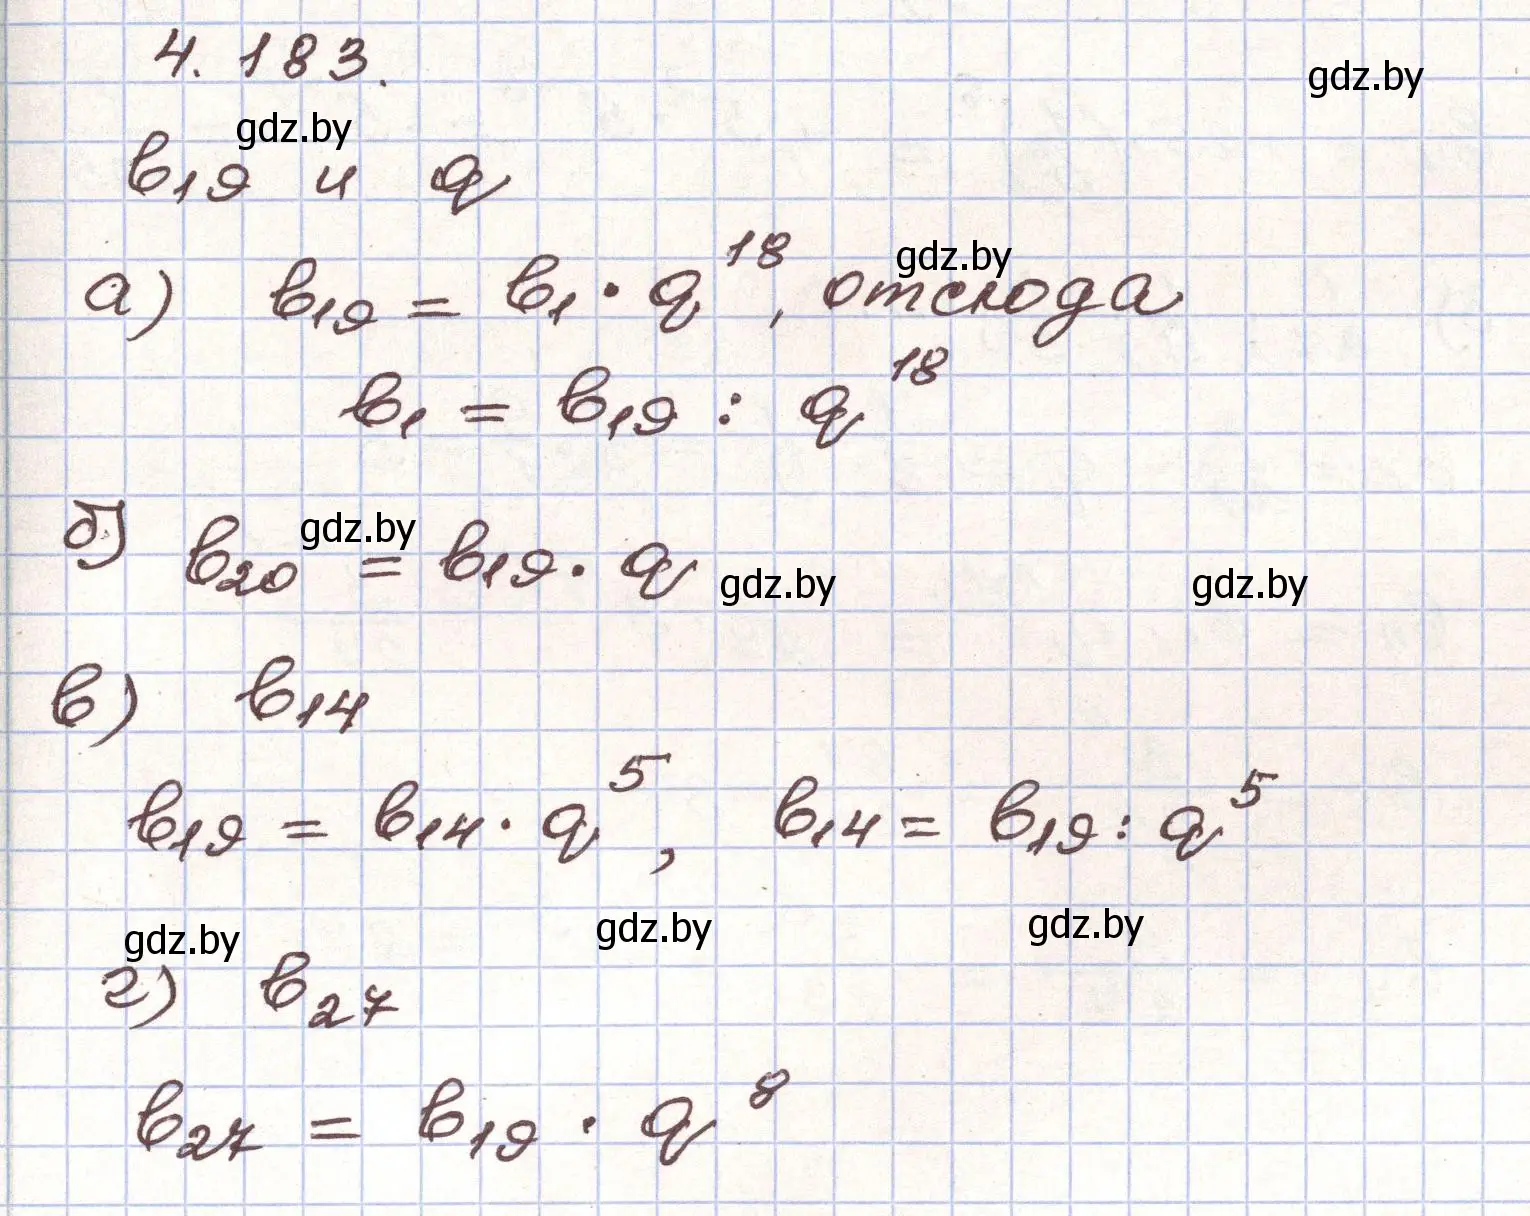 4.183.
gdz.by
gdz.by
b₁₉ и q
а) b₁₉ = b₁ · q¹⁸, отсюда
gdz.by
b₁ = b₁₉ : q¹⁸
б) b₂₀ = b₁₉ · q
gdz.by
gdz.by
gdz.by
в) b₁₄
b₁₉ = b₁₄ · q⁵, b₁₄ = b₁₉ : q⁵
gdz.by
gdz.by
gdz.by
г) b₂₇
b₂₇ = b₁₉ · q⁸